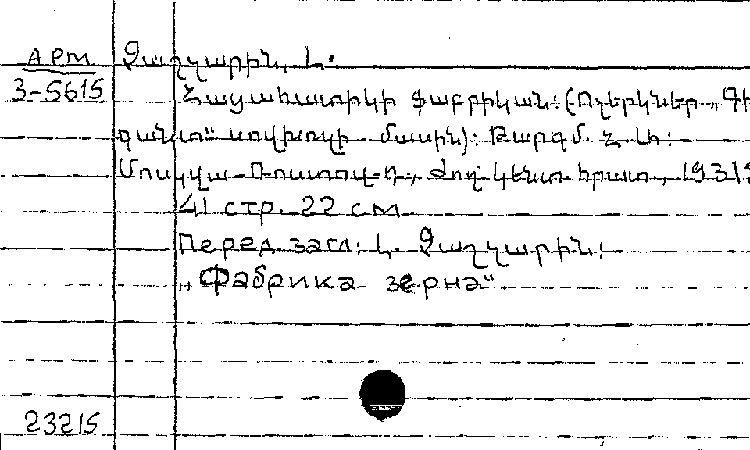 АРМ Զաղչարին, Լ.
3-5615 Հացահատիկի ֆաբրիկան: (Ոչերկներ „Գի
գանտ" սովխոզի մասին): Թարգմ. Հ. Ա:
Մոսկվա-Ռոստով-Դ., Հող կենտ հրատ, 1931
41 стр. 22 см
Перед загл: Լ. Զաղչարին:
„Фабрика зерна"
23215